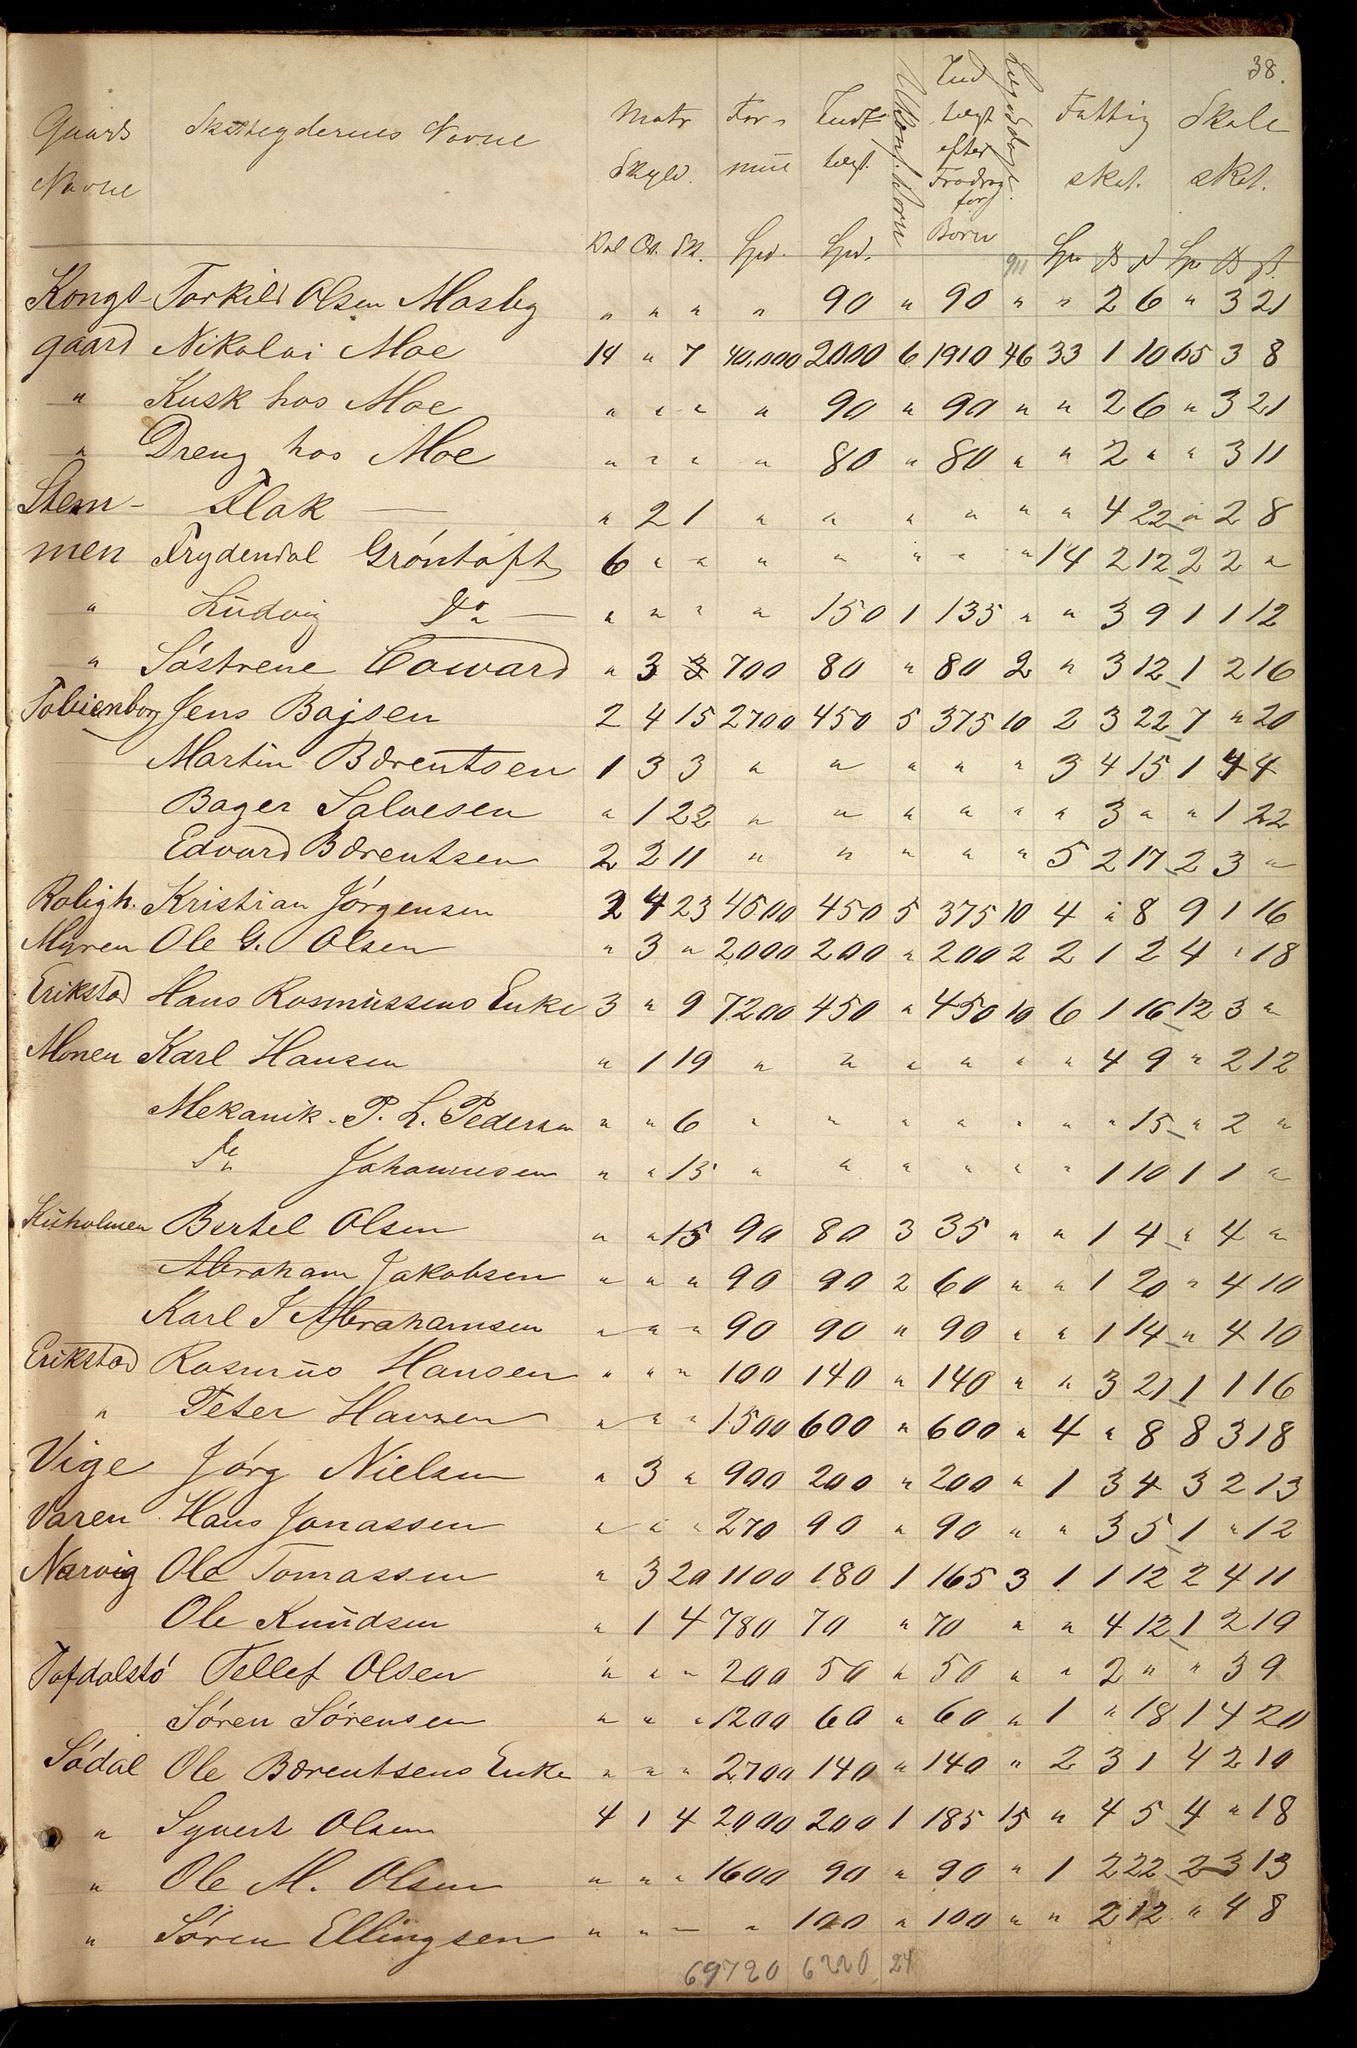 38.
Gaards Skatteydernes Navne Matr For- Indt- Ukonf. Born Ind Lægdsdage Fattig Skole
Navne Skyld. mue tægt. tægt skat. skat.
efter
Fradrag
for
Dal Ort. Sk. Spd. Spd. Børn Spd Spd
Kongs- Torkild Olsen Mosby " " " " 90 " 90 " " 2 6 " 3 21
gaard Nikolai Moe 14 " 7 40,000 2000 6 1910 46 33 1 10 65 3 8
" Kusk hos Moe " " " " 90 " 90 " " 2 6 " 3 21
" Dreng hos Moe " " " " 80 " 80 " " 2 " " 3 11
Stem- Flak — " 2 1 " " " " " " 4 22 " 2 8
men Frydendal Gröntoft 6 " " " " " " " 14 2 12 2 2 "
" Ludvig Do — " " " " 150 1 135 " " 3 9 1 1 12
" Söstrene Coward " 3 3 700 80 " 80 2 " 3 12 1 2 16
Tobienborg Jens Bojsen 2 4 15 2700 450 5 375 10 2 3 22 7 " 20
Martin Bærentsen 1 3 3 " " " " " 3 4 15 1 4 4
Bager Salvesen " 1 22 " " " " " " 3 " " 1 22
Edvard Bærentsen 2 2 11 " " " " " 5 2 17 2 3 "
Roligh. Kristian Jörgensen 2 4 23 4500 450 5 375 10 4 " 8 9 1 16
Myren Ole G. Olsen " 3 " 2000 200 " 200 2 2 1 2 4 " 18
Erikstad Hans Rasmussens Enke 3 " 9 7200 450 " 450 10 6 1 16 12 3 "
Monen Karl Hansen " 1 19 " " " " " " 4 9 " 2 12
Mekanik. P. L. Pedersen " " 6 " " " " " " " 15 " 2 "
Do Johannesen " " 15 " " " " " " 1 10 1 1 "
Kuholmen Bertel Olsen " " 15 90 80 3 35 " " 1 4 " 4 "
Abraham Jakobsen " " " 90 90 2 60 " " 1 20 " 4 10
Karl J Abrahamsen " " " 90 90 " 90 " " 1 14 " 4 10
Erikstad Rasmus Hansen " " " 100 140 " 140 " " 3 21 1 1 16
" Peter Hansen " " " 1500 600 " 600 " 4 " 8 8 3 18
Vige Jörg Nielsen " 3 " 900 200 " 200 " 1 3 4 3 2 13
Varen Hans Jonassen " " " 270 90 " 90 " " 3 5 1 " 12
Narvig Ole Tomassen " 3 20 1100 180 1 165 3 1 1 12 2 4 11
Ole Knudsen " 1 4 780 70 " 70 " " 4 12 1 2 19
Tofdalstö Tellef Olsen " " " 200 50 " 50 " " 2 " " 3 9
Sören Sörensen " " " 1200 60 " 60 " 1 " 18 1 4 20
Södal Ole Bærentsens Enke " " " 2700 140 " 140 " 2 3 1 4 2 10
" Syvert Olsen 4 1 4 2000 200 1 185 15 " 4 5 4 " 18
" Ole M. Olsen " " " 1600 90 " 90 " 1 2 22 2 3 13
" Sören Ellingsen " " — " 100 " 100 " " 2 12 " 4 8
69720 6220 24